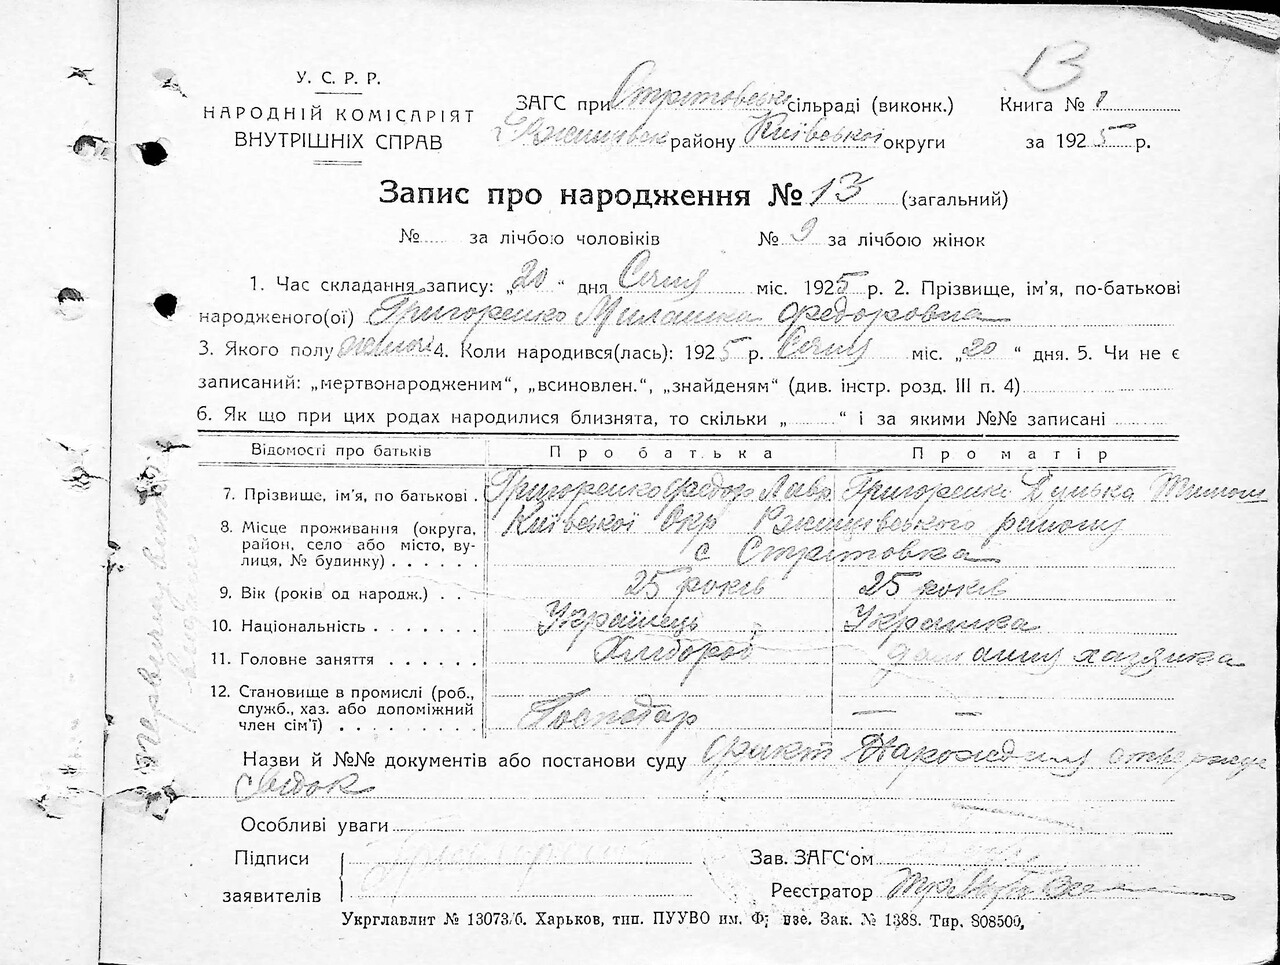 13
У. С. Р. Р.
НАРОДНІЙ КОМІСАРІЯТ
ВНУТРІШНІХ СПРАВ
ЗАГС при Стрітовські сільраді (виконк.)
Ржищівськ району Київської округи
Книга № 1
за 1925 р.
Запис про народження № 13 (загальний)
№ за лічбою чоловіків № 9 за лічбою жінок
1. Час складання запису: „20“ дня Січня міс. 1925 р. 2. Прізвище, ім’я, по-батькові
народженого(ої) Григоренко Федоровна
3. Якого полу жіночоі 4. Коли народився(лась): 1925 р. Січня міс. „20“ дня. 5. Чи не є
записаний: „мертвонародженим“, „всиновлен.“, „знайденям“ (див. інстр. розд. III п. 4)
6. Як що при цих родах народилися близнята, то скільки „ “ і за якими №№ записані
Відомості про батьків Про батька Про матір
7. Прізвище, ім’я, по батькові . Григоренко Федор Лавр Григоренко
8. Місце проживання (округа, район, село або місто, вулиця, № будинку) Київської Окр Ржищівського району
с Стрітовка
9. Вік (років од народж.) . . 25 років 25 років
10. Національність Українець Українка
11. Головне заняття Хлібороб домашня хазяйка
12. Становище в промислі (роб., служб., хаз. або допоміжний член сім’ї) Господар — —
Назви й №№ документів або постанови суду факт Народження ствержує
свідок
Особливі уваги
Підписи
заявителів
Зав. ЗАГС‘ом
Реєстратор
Укрглавлит № 13073/б. Харьков, тип. ПУУВО им. Фрунзе. Зак. № 1388. Тир. 808500,